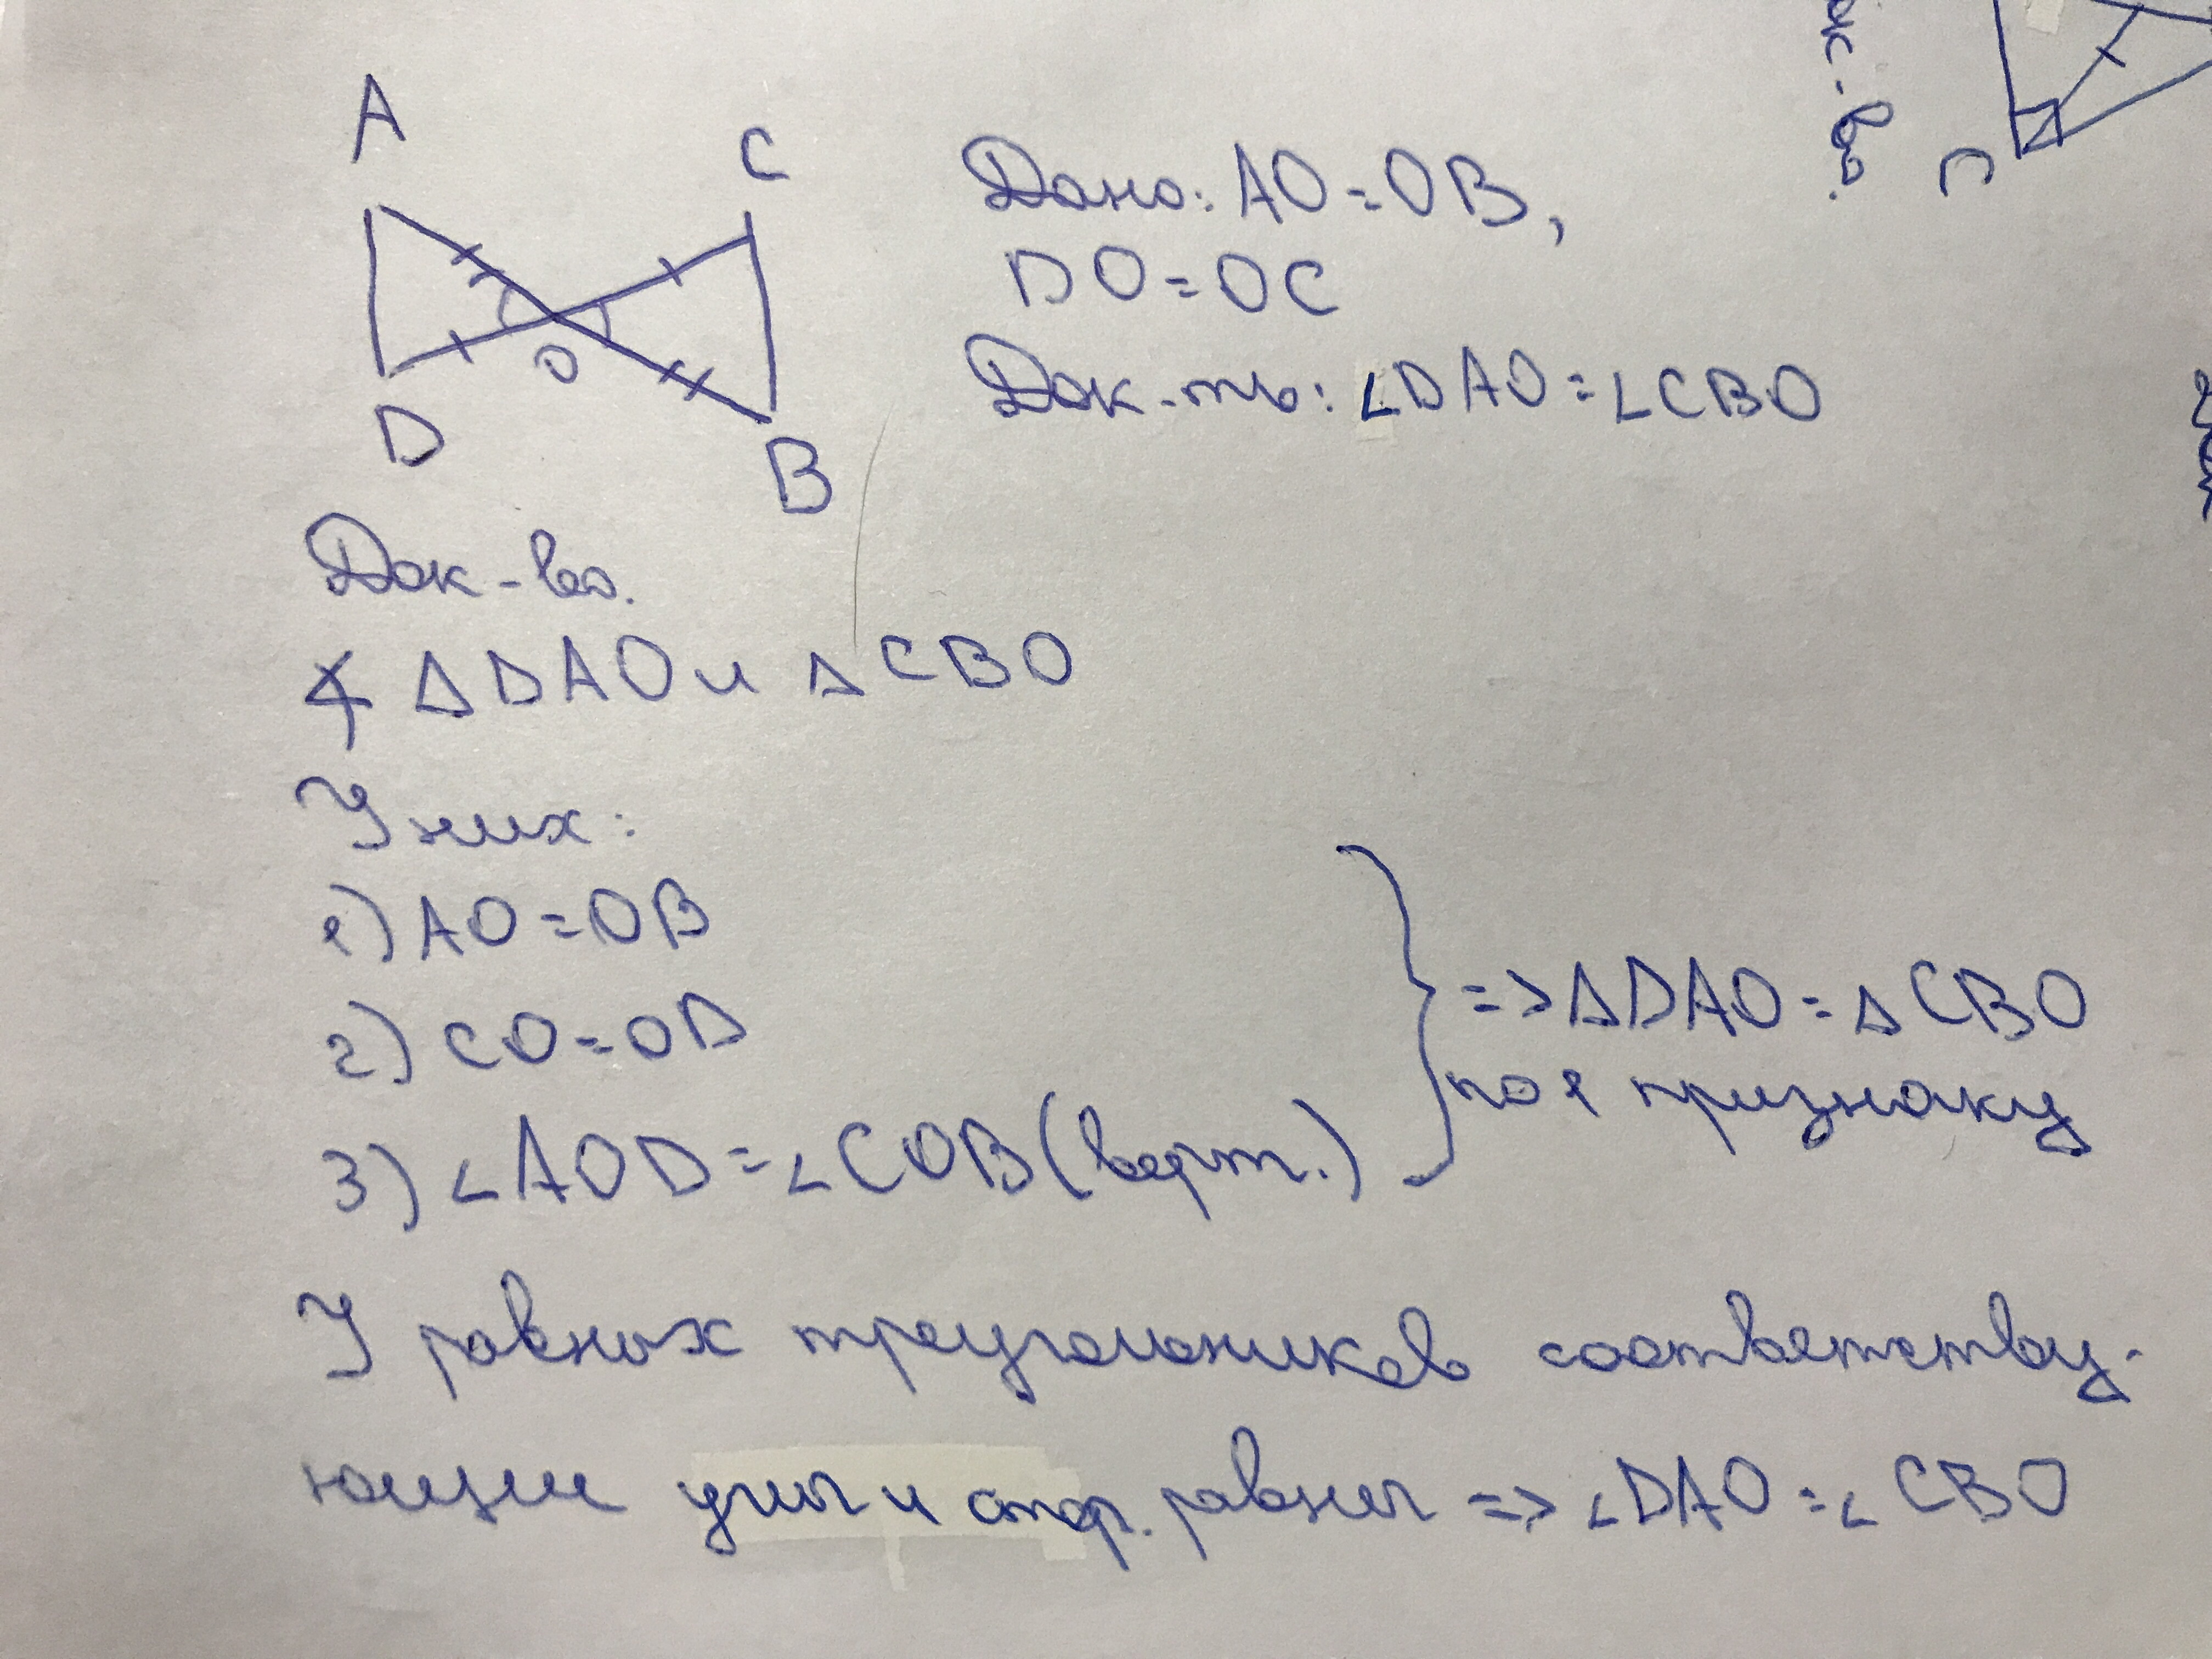 A
C
Дано: AO=OB,
DO=OC
O
Док-ть: ∠DAO=∠CBO
D
B
Док-во.
∢ ΔDAO и ΔCBO
У них:
1) AO=OB
2) CO=OD
3) ∠AOD=∠COB (верт.)
=> ΔDAO=ΔCBO
по 1 признаку
У равных треугольников соответству-
ющие углы и стор. равны => ∠DAO=∠CBO